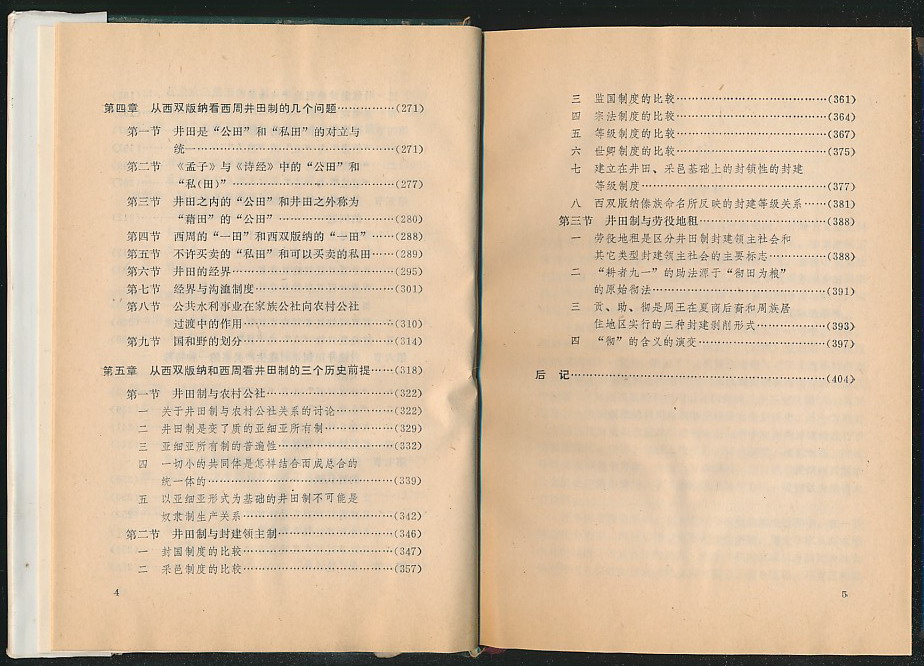 第四章 从西双版纳看西周井田制的几个问题…………(271)
第一节 井田是“公田”和“私田”的对立与
统一……………………………………(271)
第二节 《孟子》与《诗经》中的“公田”和
“私(田)”……………………………(277)
第三节 井田之内的“公田”和井田之外称为
“藉田”的“公田”……………………(280)
第四节 西周的“一田”和西双版纳的“一田”……(288)
第五节 不许买卖的“私田”和可以买卖的私田……(289)
第六节 井田的经界………………………………(295)
第七节 经界与沟洫制度…………………………(301)
第八节 公共水利事业在家族公社向农村公社
过渡中的作用…………………………(310)
第九节 国和野的划分……………………………(314)
第五章 从西双版纳和西周看井田制的三个历史前提……(318)
第一节 井田制与农村公社………………………(322)
一 关于井田制与农村公社关系的讨论…………(322)
二 井田制是变了质的亚细亚所有制……………(329)
三 亚细亚所有制的普遍性………………………(332)
四 一切小的共同体是怎样结合而成总合的
统一体的…………………………………(339)
五 以亚细亚形式为基础的井田制不可能是
奴隶制生产关系…………………………(342)
第二节 井田制与封建领主制……………………(346)
一 封国制度的比较………………………………(347)
二 采邑制度的比较………………………………(357)
4
三 监国制度的比较………………………………(361)
四 宗法制度的比较………………………………(364)
五 等级制度的比较………………………………(367)
六 世卿制度的比较………………………………(375)
七 建立在井田、采邑基础上的封锁性的封建
等级制度…………………………………(377)
八 西双版纳傣族命名所反映的封建等级关系……(381)
第三节 井田制与劳役地租………………………(388)
一 劳役地租是区分井田制封建领主社会和
其它类型封建领主社会的主要标志…………(388)
二 “耕者九一”的助法源于“彻田为粮”
的原始彻法………………………………(391)
三 贡、助、彻是周王在夏商后裔和周族居
住地区实行的三种封建剥削形式……………(393)
四 “彻”的含义的演变…………………………(397)
后 记……………………………………………………(404)
5